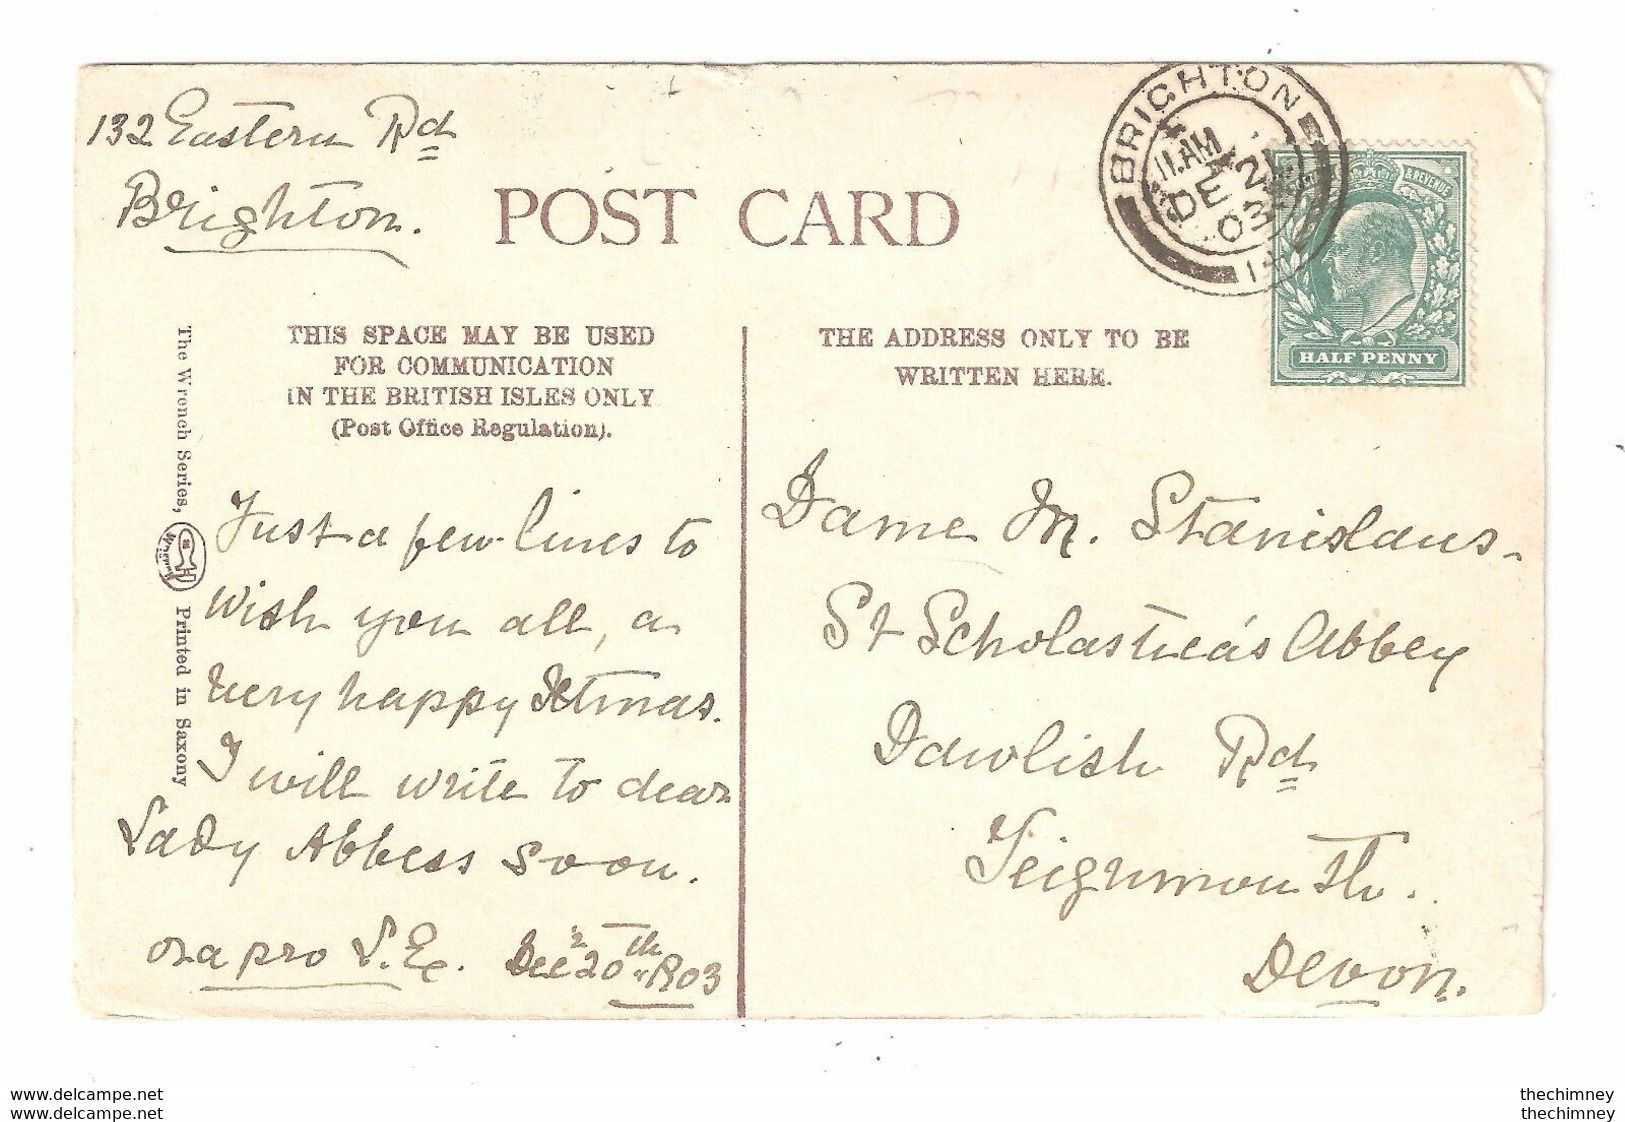 132 Eastern Rd
Brighton.
POST CARD
BRIGHTON
11.AM
DE 21
03
& REVENUE
HALF PENNY
THIS SPACE MAY BE USED
FOR COMMUNICATION
IN THE BRITISH ISLES ONLY
(Post Office Regulation).
THE ADDRESS ONLY TO BE
WRITTEN HERE.
The Wrench Series, Printed in Saxony
Just a few lines to
wish you all, a
very happy Xtmas.
I will write to dear
Lady Abbess soon.
ora pro S.E. Dec 20th 1903
Dame M. Stanislaus
St Scholastica's Abbey
Dawlish Rd
Teignmouth.
Devon.
www.delcampe.net
www.delcampe.net
thechimney
thechimney